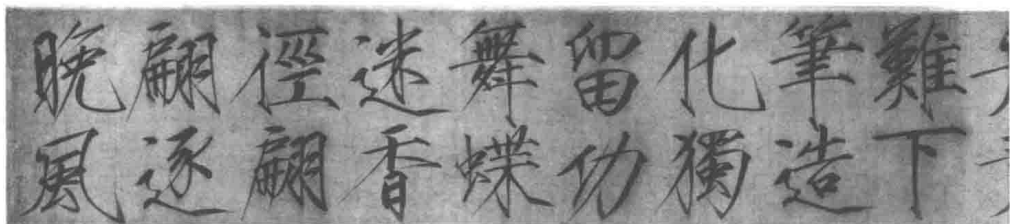 難下
筆造
化獨
留功
舞蝶
迷香
徑翩
翩逐
晚風